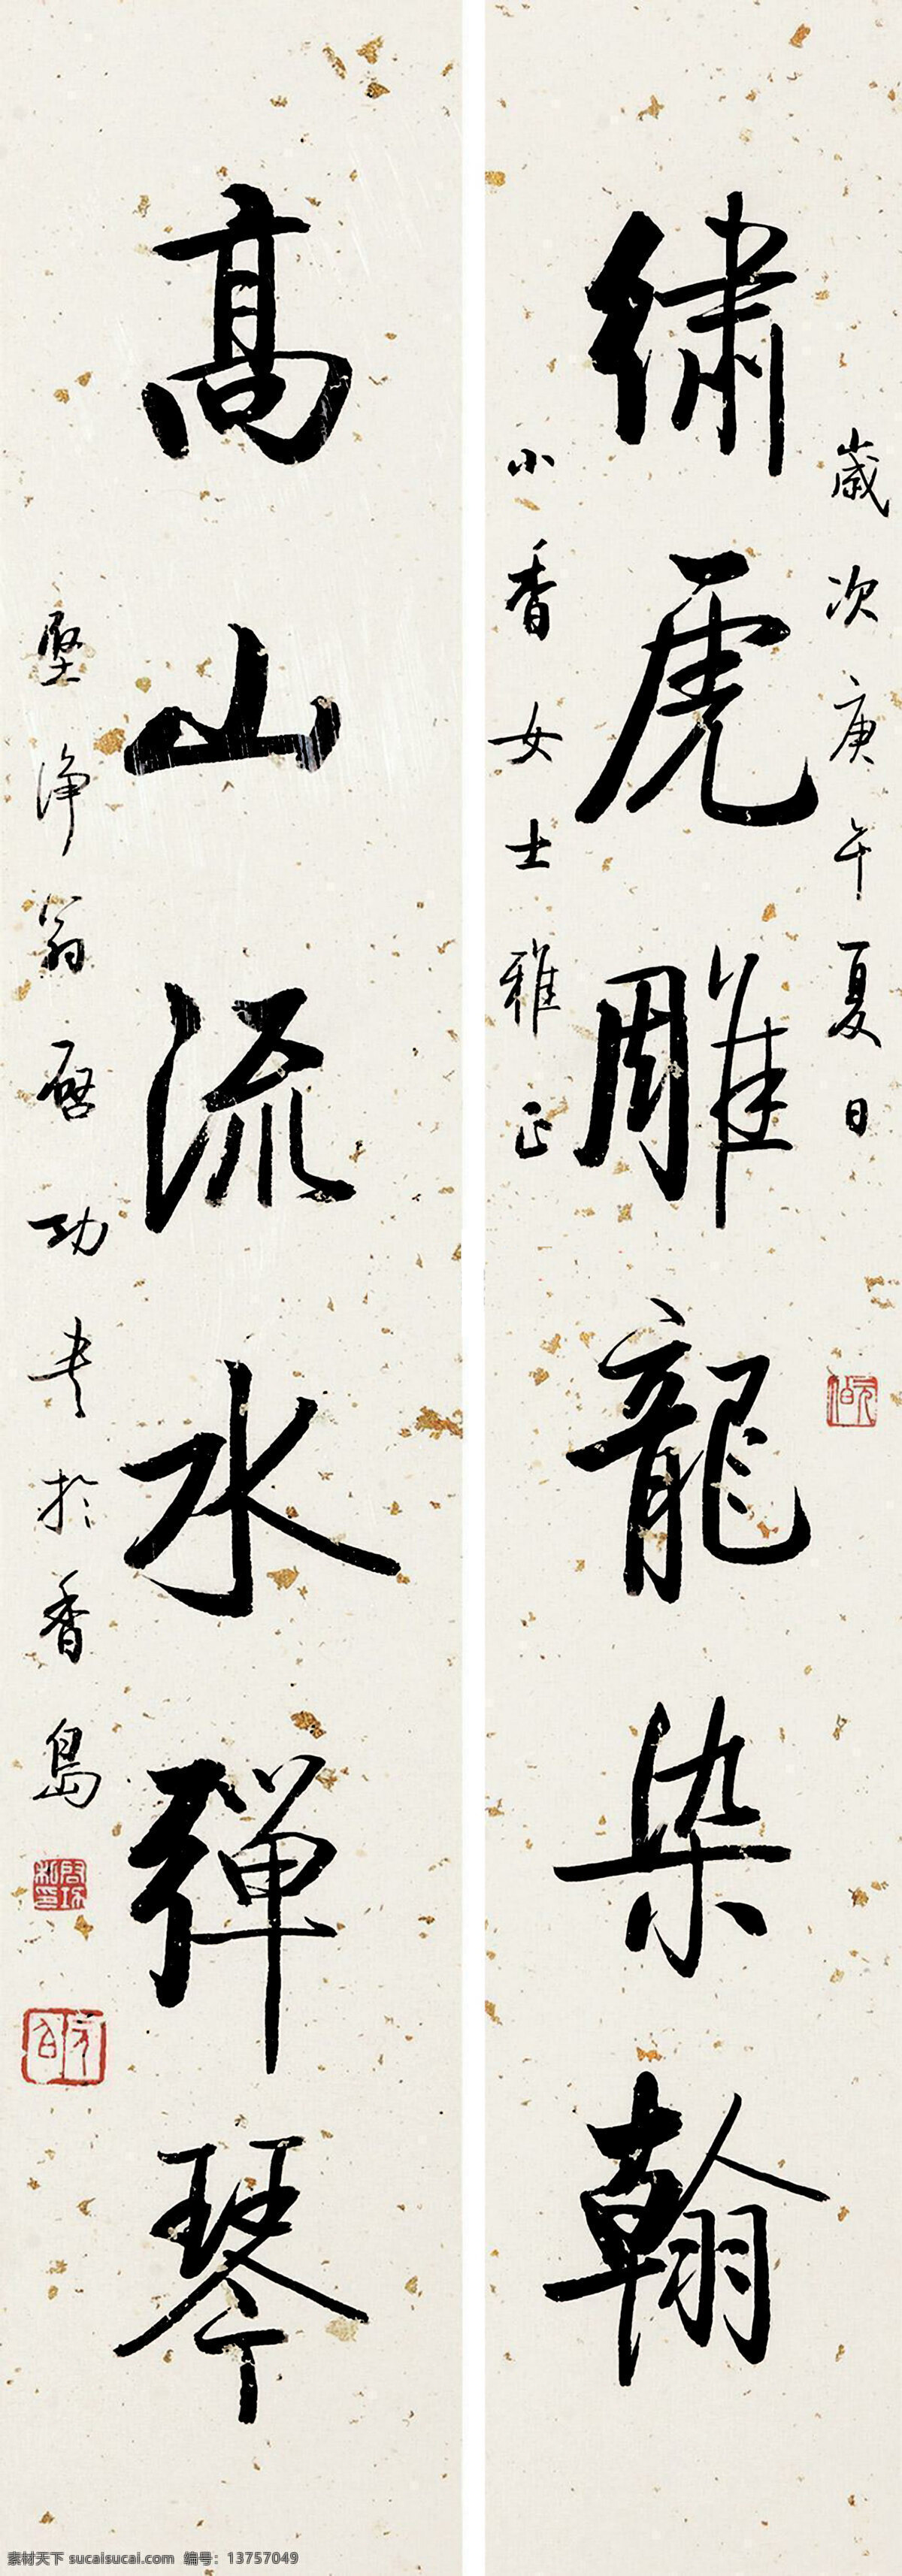 歲次庚午夏日
繡虎雕龍染翰
小香女士雅正
高山流水彈琴
堅淨翁啟功書於香島
素材天下 sucaisucai.com 编号：13757049